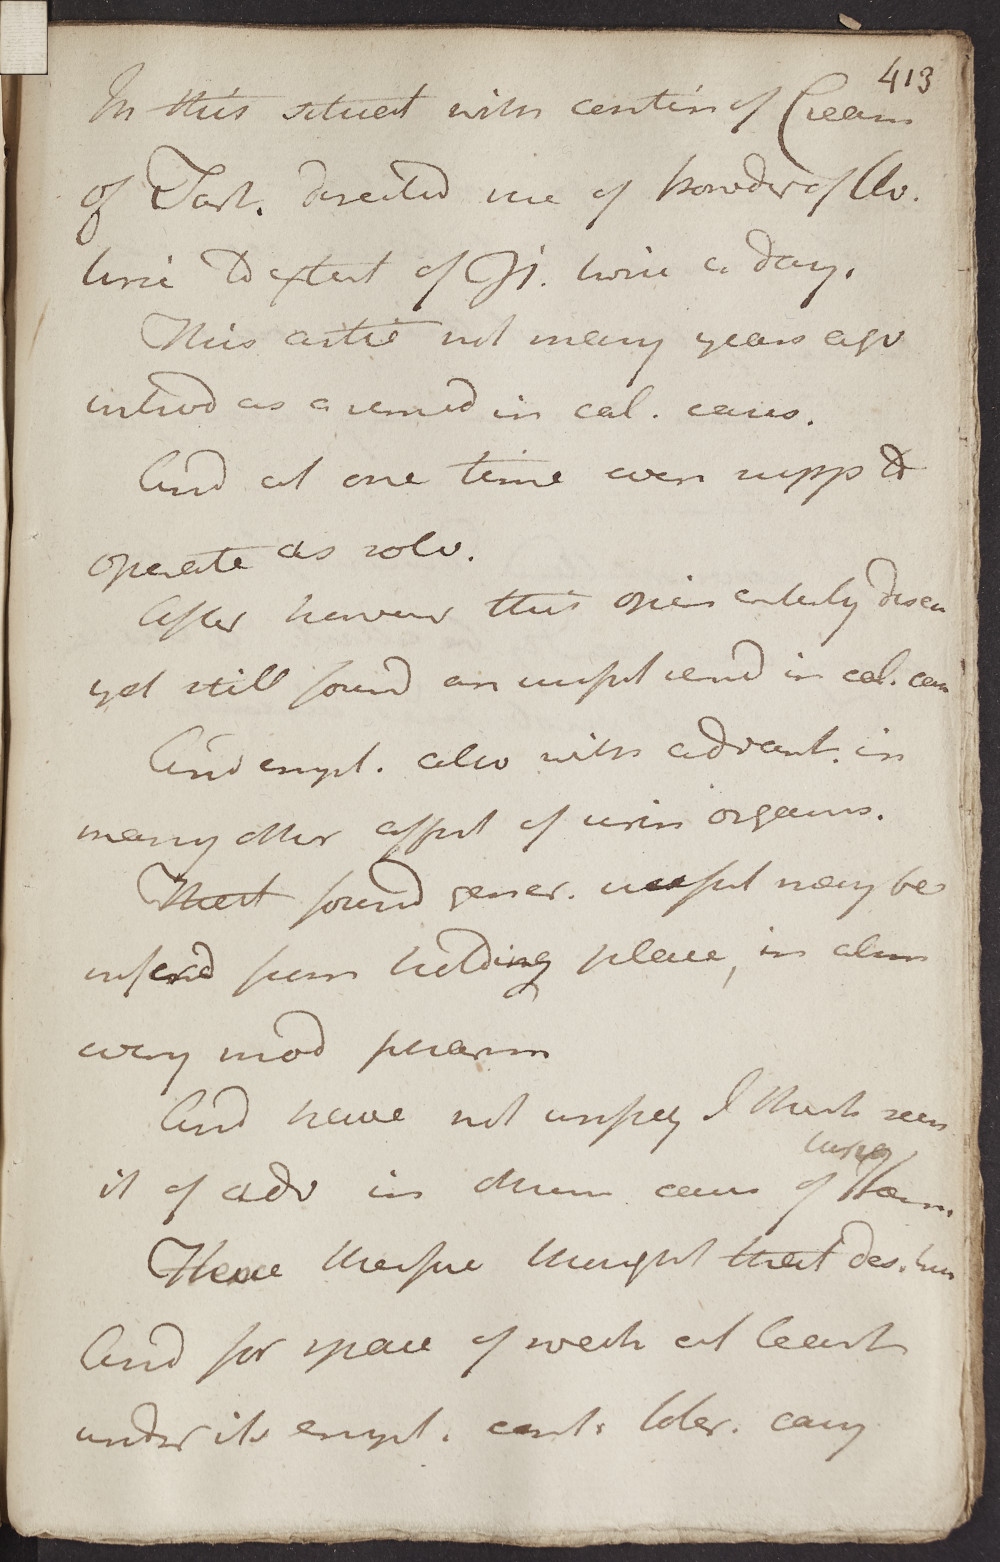 413
In this situat with contin of Cream
of Tart. directed use of powder of Uv.
Ursi to extent of ʒi. twice a day.
This article not many years ago
introd as a remed in cal. cases.
And at one time even supp to
operate as solv.
After however this opin entirely disca
yet still found an usefl remd in cal. cas
And empl. also with advant. in
many other affect of urin organs.
That found gener. useful may be
inferd from holding place, in alm
every mod pharm
And have not unfreq I think seen
it of adv in chron cases of
Hæm.
Have therefore thought that des. here
And for space of week at least
under its empl. cont. toler. easy